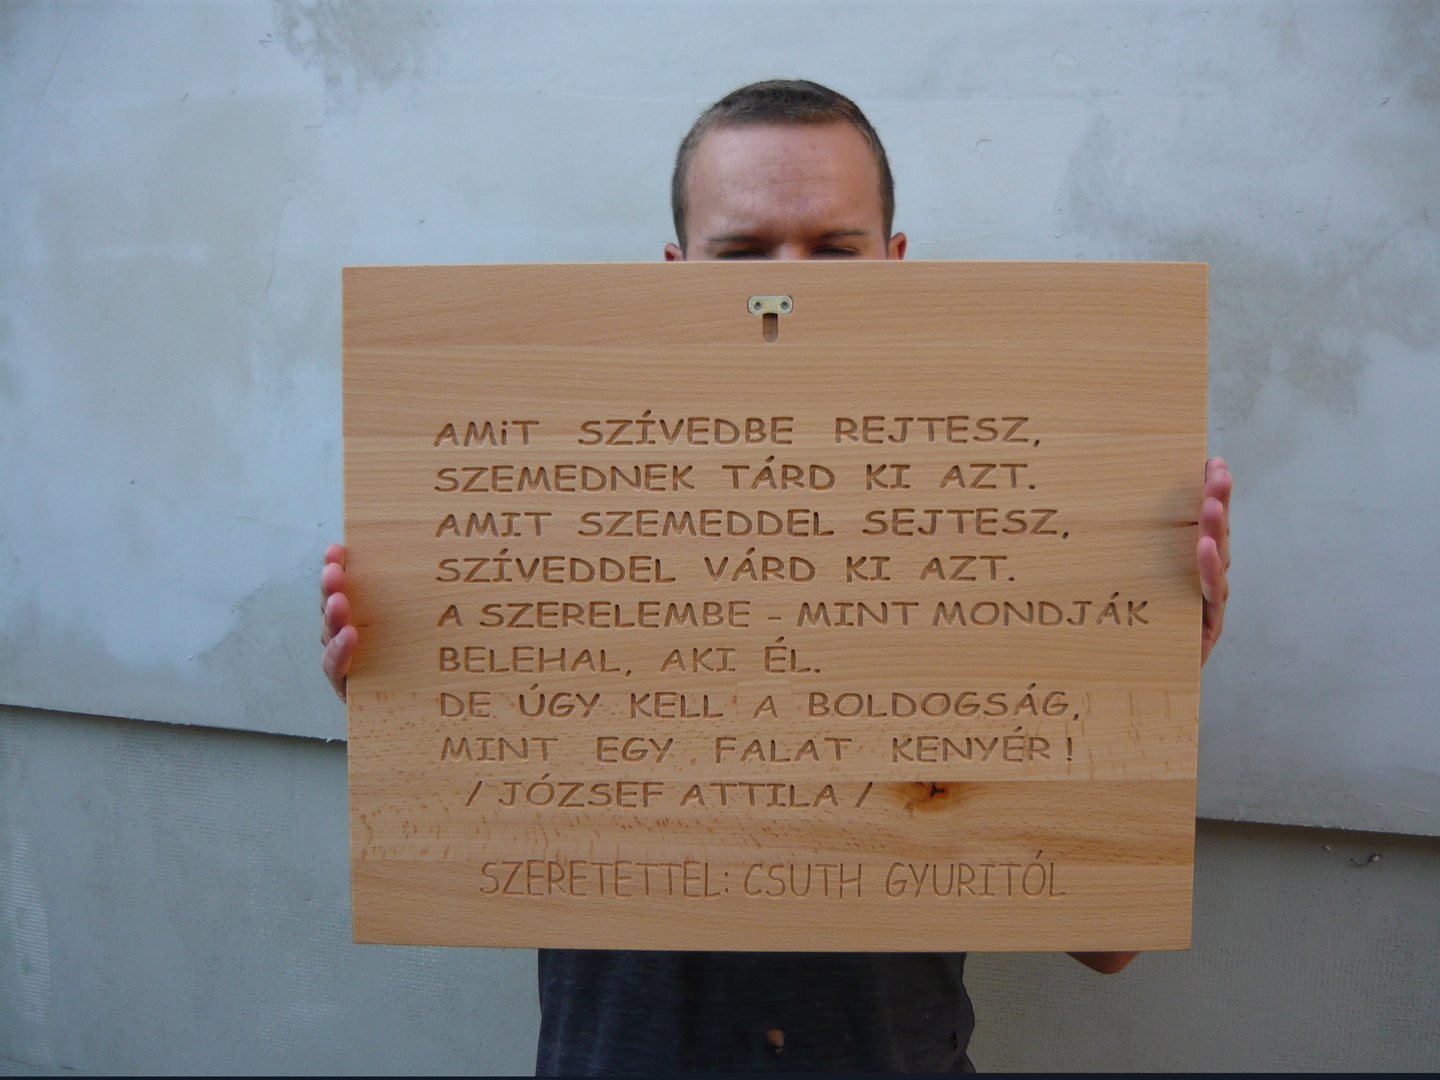 AMiT SZÍVEDBE REJTESZ,
SZEMEDNEK TÁRD KI AZT.
AMIT SZEMEDDEL SEJTESZ,
SZÍVEDDEL VÁRD KI AZT.
A SZERELEMBE - MINT MONDJÁK
BELEHAL, AKI ÉL.
DE ÚGY KELL A BOLDOGSÁG,
MINT EGY FALAT KENYÉR!
/ JÓZSEF ATTILA /
SZERETETTEL: CSUTH GYURITÓL